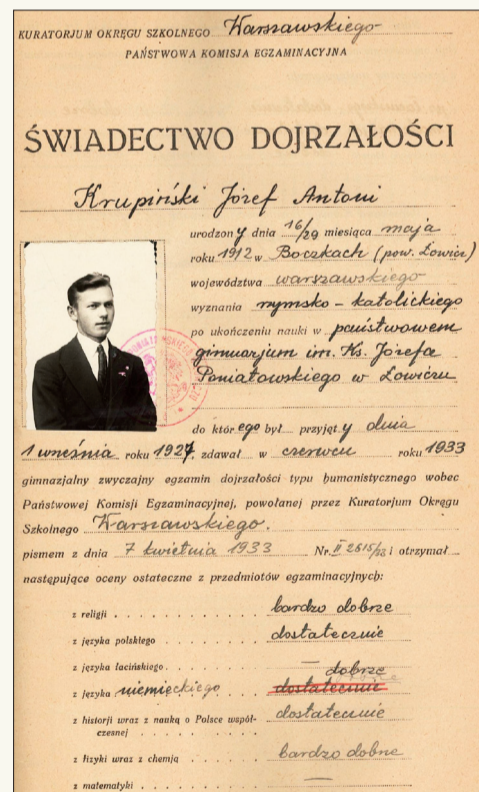 KURATORJUM OKRĘGU SZKOLNEGO Warszawskiego
PAŃSTWOWA KOMISJA EGZAMINACYJNA
ŚWIADECTWO DOJRZAŁOŚCI
Krupiński Józef Antoni
urodzony dnia 16/29 miesiąca maja
roku 1912 w Boczkach (pow. Łowicz)
województwa warszawskiego
wyznania rzymsko-katolickiego
po ukończeniu nauki w państwowem
gimnazjum im. Ks. Józefa
Poniatowskiego w Łowiczu
do którego był przyjęty dnia
1 września roku 1927, zdawał w czerwcu roku 1933
gimnazjalny zwyczajny egzamin dojrzałości typu humanistycznego wobec
Państwowej Komisji Egzaminacyjnej, powołanej przez Kuratorjum Okręgu
Szkolnego Warszawskiego.
pismem z dnia 7 kwietnia 1933 Nr. II 2615/33 i otrzymał
następujące oceny ostateczne z przedmiotów egzaminacyjnych:
z religji . . . . . . . . . bardzo dobrze
z języka polskiego . . . . . . dostatecznie
z języka łacińskiego . . . . . . —
dobrze
z języka niemieckiego dostatecznie
z historji wraz z nauką o Polsce współ-
czesnej . . . . . . . . dostatecznie
z fizyki wraz z chemją . . . . . bardzo dobrze
z matematyki . . . . . . . —